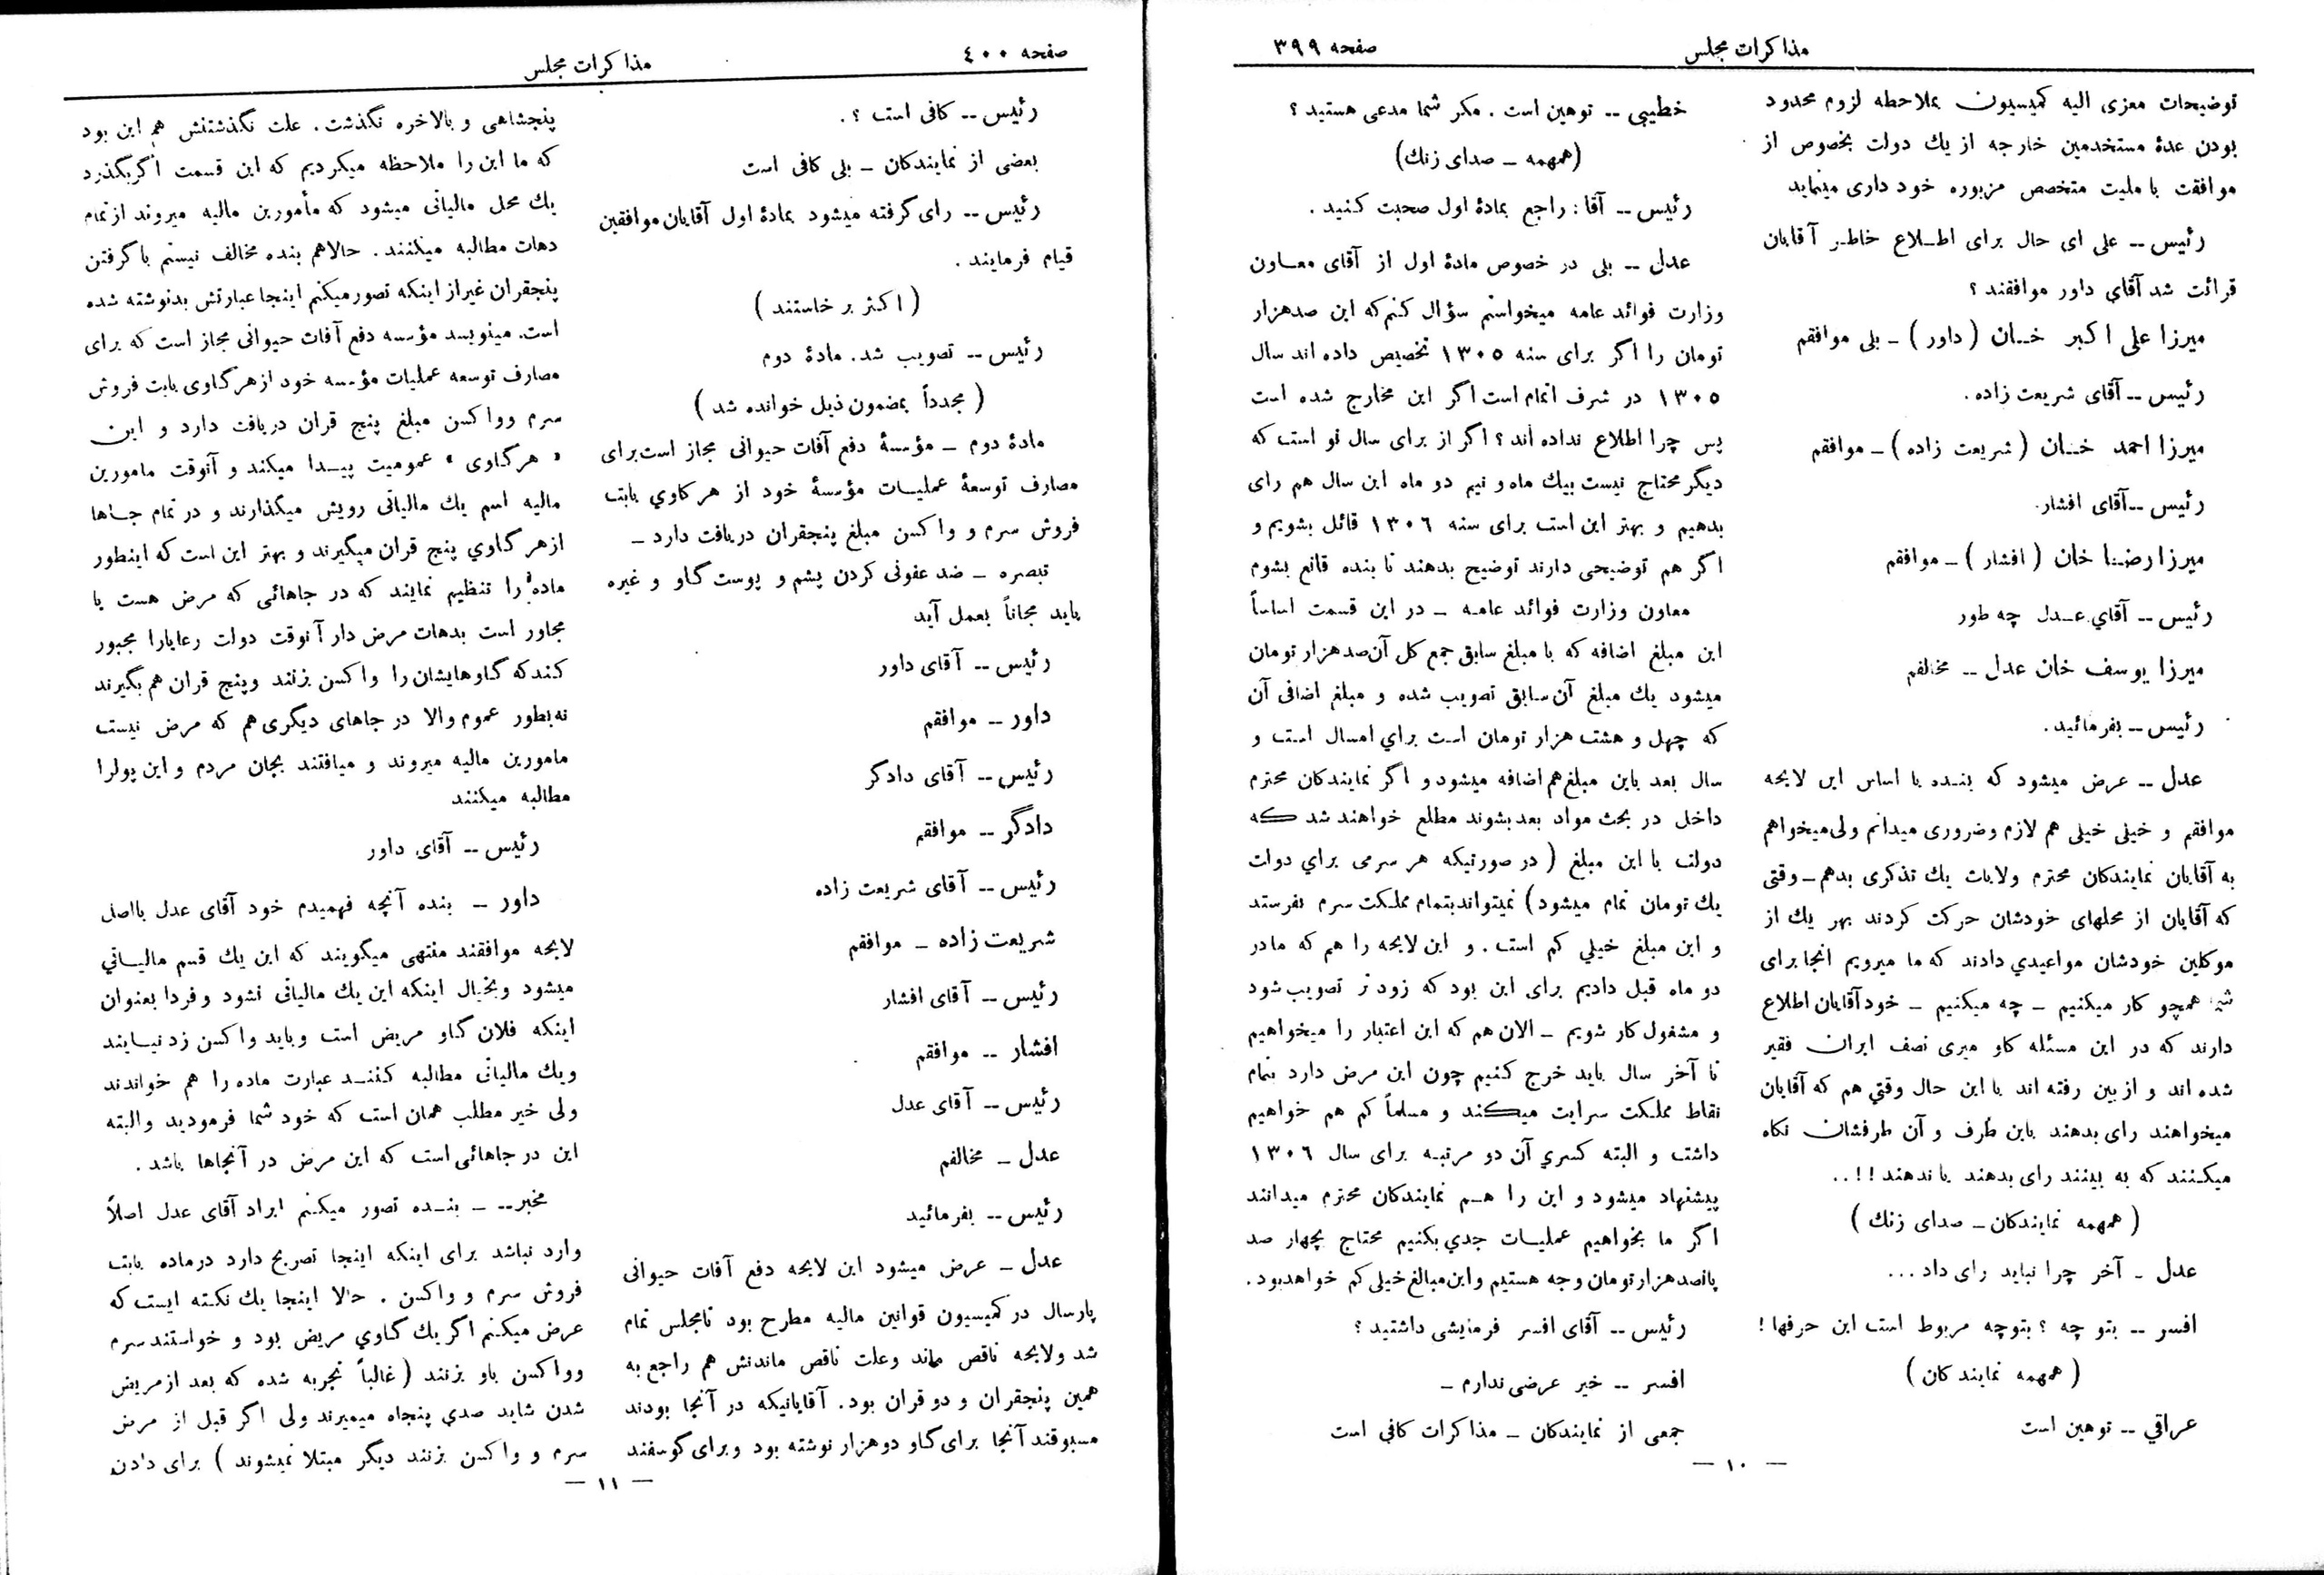 مذاکرات مجلس
صفحه ۳۹۹
توضیحات معزی الیه کمیسیون بملاحظه لزوم محدود
بودن عدهٔ مستخدمین خارجه از یك دولت بخصوص از
موافقت با ملیت متخصص مزبوره خود داری مینماید
رئیس -- علی ای حال برای اطلاع خاطر آقایان
قرائت شد آقای داور موافقند ؟
میرزا علی اکبر خان ( داور ) - بلی موافقم
رئیس -- آقای شریعت زاده .
میرزا احمد خان ( شریعت زاده ) - موافقم
رئیس -- آقای افشار.
میرزا رضا خان ( افشار ) - موافقم
رئیس -- آقای عدل چه طور
میرزا یوسف خان عدل -- مخالفم
رئیس -- بفرمائید .
عدل -- عرض میشود که بنده با اساس این لایحه
موافقم و خیلی خیلی هم لازم وضروری میدانم ولی میخواهم
به آقایان نمایندکان محترم ولایات یك تذکری بدهم - وقتی
که آقایان از محلهای خودشان حرکت کردند بهر یك از
موکلین خودشان مواعیدي دادند که ما میرویم انجا برای
شما همچو کار میکنیم - چه میکنیم - خود آقایان اطلاع
دارند که در این مسئله کاو میری نصف ایران فقیر
شده اند و از بین رفته اند با این حال وقتي هم که آقایان
میخواهند رای بدهند باین طرف و آن طرفشان نکاه
میکنند که به بینند رای بدهند یا ندهند ! ! . .
( همهمه نمایندکان - صدای زنك )
عدل - آخر چرا نباید رای داد ...
افسر -- بتو چه ؟ بتوچه مربوط است این حرفها !
( همهمه نمایندکان )
عراقي -- توهین است
خطیبی -- توهین است . مکر شما مدعی هستید ؟
(همهمه - صدای زنك)
رئیس -- آقا : راجع بمادهٔ اول صحبت کنید .
عدل -- بلی در خصوص مادهٔ اول از آقای معاون
وزارت فوائد عامه میخواستم سؤال کنم که این صدهزار
تومان را اگر برای سنه ۱۳۰۵ تخصیص داده اند سال
۱۳۰۵ در شرف اتمام است اگر این مخارج شده است
پس چرا اطلاع نداده اند ؟ اگر از برای سال نو است که
دیگر محتاج نیست بیك ماه و نیم دو ماه این سال هم رای
بدهیم و بهتر این است برای سنه ۱۳۰۶ قائل بشویم و
اگر هم توضیحی دارند توضیح بدهند تا بنده قانع بشوم
معاون وزارت فوائد عامه - در این قسمت اساساً
این مبلغ اضافه که با مبلغ سابق جمع کل آن صد هزار تومان
میشود یك مبلغ آن سابق تصویب شده و مبلغ اضافی آن
که چهل و هشت هزار تومان است براي امسال است و
سال بعد باین مبلغ هم اضافه میشود و اگر نمایندکان محترم
داخل در بحث مواد بعد بشوند مطلع خواهند شد که
دولت با این مبلغ ( در صورتیکه هر سرمی براي دولت
یك تومان تمام میشود ) نمیتواند بتمام مملکت سرم بفرستد
و این مبلغ خیلي کم است . و این لایحه را هم که ما در
دو ماه قبل دادیم برای این بود که زود تر تصویب شود
و مشغول کار شویم - الان هم که این اعتبار را میخواهیم
تا آخر سال باید خرج کنیم چون این مرض دارد بتمام
نقاط مملکت سرایت میکند و مسلماً کم هم خواهیم
داشت و البته کسري آن دو مرتبه برای سال ۱۳۰۶
پیشنهاد میشود و این را هم نمایندکان محترم میدانند
اگر ما بخواهیم عملیات جدي بکنیم محتاج بچهار صد
پانصد هزار تومان وجه هستیم و این مبالغ خیلی کم خواهد بود .
رئیس -- آقای افسر فرمایشی داشتید ؟
افسر -- خیر عرضی ندارم -
جمعی از نمایندکان - مذاکرات کافی است
— ۱۰ —
صفحه ۴۰۰
مذاکرات مجلس
رئیس -- کافی است ؟ .
بعضی از نمایندکان - بلی کافی است
رئیس -- رای گرفته میشود بمادهٔ اول آقایان موافقین
قیام فرمایند .
( اکثر بر خاستند )
رئیس -- تصویب شد . مادهٔ دوم
( مجدداً بمضمون ذیل خوانده شد )
مادهٔ دوم - مؤسسهٔ دفع آفات حیوانی مجاز است برای
مصارف توسعهٔ عملیات مؤسسهٔ خود از هر کاوي بابت
فروش سرم و واکسن مبلغ پنجقران دریافت دارد -
تبصره - ضد عفونی کردن پشم و پوست گاو و غیره
باید مجاناً بعمل آید
رئیس -- آقای داور
داور -- موافقم
رئیس -- آقای دادکر
دادگر -- موافقم
رئیس -- آقای شریعت زاده
شریعت زاده - موافقم
رئیس -- آقای افشار
افشار -- موافقم
رئیس -- آقای عدل
عدل - مخالفم
رئیس -- بفرمائید
عدل - عرض میشود این لایحه دفع آفات حیوانی
پارسال در کمیسیون قوانین مالیه مطرح بود تا مجلس تمام
شد ولایحه ناقص ماند وعلت ناقص ماندنش هم راجع به
همین پنجقران و دو قران بود . آقایانیکه در آنجا بودند
مسبوقند آنجا برای گاو دو هزار نوشته بود و برای گوسفند
پنجشاهی و بالاخره نگذشت . علت نگذشتنش هم این بود
که ما این را ملاحظه میکردیم که این قسمت اگر بگذرد
یك محل مالیاتی میشود که مأمورین مالیه میروند از تمام
دهات مطالبه میکنند . حالا هم بنده مخالف نیستم با گرفتن
پنجقران غیر از اینکه تصور میکنم اینجا عبارتش بد نوشته شده
است . مینویسد مؤسسه دفع آفات حیوانی مجاز است که برای
مصارف توسعه عملیات مؤسسه خود از هر گاوی بابت فروش
سرم و واکسن مبلغ پنج قران دریافت دارد و این
« هر گاوی » عمومیت پیدا میکند و آنوقت مامورین
مالیه اسم یك مالیاتی رویش میگذارند و در تمام جاها
از هر گاوي پنج قران میگیرند و بهتر این است که اینطور
ماده را تنظیم نمایند که در جاهائی که مرض هست یا
مجاور است بدهات مرض دار آنوقت دولت رعایا را مجبور
کند که گاوهایشان را واکسن بزنند و پنج قران هم بگیرند
نه بطور عموم والا در جاهای دیگری هم که مرض نیست
مامورین مالیه میروند و میافتند بجان مردم و این پول را
مطالبه میکنند
رئیس -- آقای داور
داور - بنده آنچه فهمیدم خود آقای عدل با اصل
لایحه موافقند منتهی میگویند که این یك قسم مالیاتي
میشود و بخیال اینکه این یك مالیاتی نشود و فردا بعنوان
اینکه فلان گاو مریض است و باید واکسن زد نیایند
ویك مالیاتی مطالبه کنند عبارت ماده را هم خواندند
ولی خیر مطلب همان است که خود شما فرمودید و البته
این در جاهائی است که این مرض در آنجاها باشد .
مخبر -- بنده تصور میکنم ایراد آقای عدل اصلاً
وارد نباشد برای اینکه اینجا تصریح دارد در ماده بابت
فروش سرم و واکسن . حالا اینجا یك نکته ایست که
عرض میکنم اگر یك گاوي مریض بود و خواستند سرم
و واکسن باو بزنند ( غالباً تجربه شده که بعد از مریض
شدن شاید صدی پنجاه میمیرند ولی اگر قبل از مرض
سرم و واکسن بزنند دیگر مبتلا نمیشوند ) برای دادن
— ۱۱ —